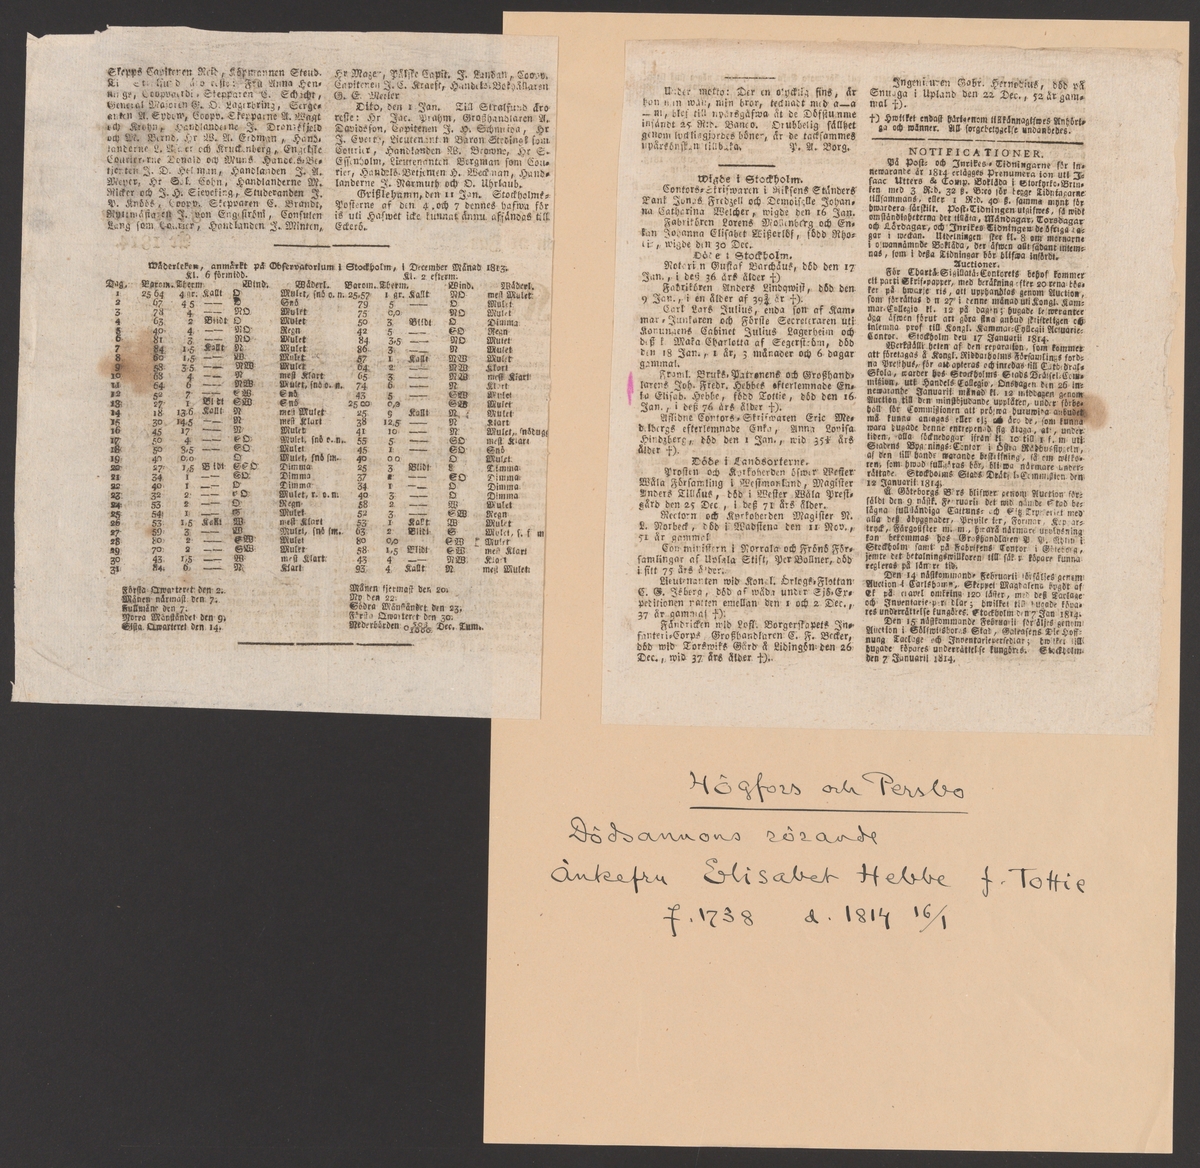 Skepps Capitenen Reid, Köpmannen Steud.
General Majoren G. O. Lagerbring, Serge-
anten A. Sydow, Coopv. Skepparne A. Wagt
och Krohn, Handlanderne J. Dronskfield
och W. Bernd, Hr L. A. Erdman, Hand-
Courierne Donald och Murs Hand.s-Be-
tjenten J. D. Helman, Handlanden J. A.
Meyer, Hr Sal. Cohn, Handlanderne M.
Ricker och J. H. Sieveking, Studeranden J.
P. Knöös, Coopv. Skepparen C. Brandt,
Ryttmästaren J. von Engström, Consulen
Lang som Courier, Handlanden J. Minten,
Hr Mazer, Påsske Capit. J. Landau, Coopv.
Capitenen J. C. Kraeft, Handels-Bokhållaren
G. E. Meiler
Dito, den 1 Jan. Till Stralsund äro
reste: Hr Jac. Prahm, Grosshandlaren A.
Davidson, Capitenen J. H. Schmidt, Hr
J. Evert, Lieutenanten Baron Stedingk som
Courier, Handlanden W. Browne, Hr S.
Eissenholm, Lieutenanten Bergman som Cou-
rier, Handels-Betjenten H. Weckman, Hand-
landerne J. Narmuth och O. Uhrlaub.
Grislehamn, den 11 Jan. Stockholms-
Posterne af den 4, och 7 dennes hafwa för
is uti Hafwet icke kunnat ännu afsändas till
Eckerö.
Wäderleken, anmärkt på Observatorium i Stockholm, i December Månad 1813.
Kl. 6 förmidd. Kl. 2 efterm.
Dag. Barom. Therm. Wind. Wäderl. Barom. Therm. Wind. Wäderl.
1 25 64 4 gr. Kallt O Mulet, snö o. n. 25,57 1 gr. Kallt NO mest Mulet
2 67 4,5 — O Snö 79 5 — O Mulet
3 78 4 — NO Mulet 75 0,0 NO Mulet
4 63 2 Blidt O Mulet 50 3 Blidt O Dimma
5 40 4 — SO Regn 42 5 — SO Regn
6 81 3 — NO Mulet 84 3,5 — NO Mulet
7 84 1,5 Kallt N Mulet 86 3 — N Mulet
8 60 1,5 — W Mulet 57 1 Kallt NW mest Klart
9 58 3,5 — NW Mulet 64 2 — N Klart
10 68 4 — N mest Klart 65 3 — NW mest Klart
11 64 6 — NW Mulet, snö o. n. 74 6 — N Klart
12 52 7 — SW Snö 43 5 — SW Mulet
13 27 1 Blidt SW Snö 25 00 0,0 SW Mulet
14 18 13,6 Kallt N mest Mulet 25 9 Kallt N Mulet
15 30 14,5 — N mest Klart 38 12,5 — N Klart
16 45 17 — N Mulet 41 10 — N Mulet, snöugt
17 50 4 — SO Mulet, snö o. n. 55 5 — SO mest Klart
18 50 3,5 — SO Klart 45 1 — SO Snö
19 40 0,0 — O Mulet, snö m. 40 0,0 O Mulet
20 27 1,5 Blidt SSO Dimma 25 3 Blidt L Dimma
21 34 1 — SO Dimma 37 1 — SO Dimma
22 40 1 — O Dimma 34 1 — O Dimma
23 32 2 — O Mulet, r. o. n. 40 3 — O Dimma
24 53 2 — O Regn 58 2 — W Mulet
25 54 1 — S Mulet 52 3 — SW Regn
26 53 1,5 Kallt W mest Klart 53 1 Kallt W Mulet
27 59 3 — W Mulet, snö m. 63 2 Blidt S Mulet, s. f. m
28 80 2 — SW Mulet 80 0,0 SW Mulet
29 70 2 — SW Mulet 58 1,5 Blidt SW mest Klart
30 43 1,5 — W mest Klart 43 4 — W mest Klart
31 84 6 — N Klart 95 4 Kallt N mest Mulet
Första Qwarteret den 2.
Månen närmast den 7.
Fullmåne den 7.
Norra Månståndet den 9.
Sista Qwarteret den 14.
Månen fjermast den 20.
Ny den 22.
Södra Månståndet den 23.
Första Qwarteret den 30.
Nederbörden Dec. Tum.
Under motto: Der en olycklig fins, är
hon min wän, min bror, tecknadt med a—a
— m, blef till nyårsgåfwa åt de Döfstumme
insändt 25 Rd. Banco. Orubbelig sällhet
genom lycksgjordes böner, är de tacksammes
nyårsönskan tillbaka. P. A. Borg.
Wigde i Stockholm.
Contors-Skrifwaren i Riksens Ständers
Bank Jonas Fredzell och Demoiselle Johan-
na Catharina Welcher, wigde den 16 Jan.
Fabrikören Lorens Mozenberg och En-
kan Johanna Elisabet Wisserlöf, född Rho-
din, wigde den 30 Dec.
Döde i Stockholm.
Notarien Gustaf Barchäus, död den 17
Jan., i dess 36 års ålder †).
Fabrikören Anders Lindqwist, död den
9 Jan., i en ålder af 39¾ år †).
Carl Lars Julius, enda son af Kam-
mar-Junkaren och Förste Secreteraren uti
Konungens Cabinet Julius Lagerheim och
dess K. Maka Charlotta af Segerström, död
den 18 Jan., 1 år, 3 månader och 6 dagar
gammal.
Framl. Bruks-Patronens och Grosshand-
larens Joh. Fredr. Hebbes efterlemnade En-
ka Elisab. Hebbe, född Tottie, död den 16
Jan., i dess 76 års ålder †).
Aflidne Contors-Skrifwaren Eric Me-
delbergs efterlemnade Enka, Anna Lovisa
Hindzberg, död den 1 Jan., wid 35½ års
ålder †).
Döde i Landsorterne.
Prosten och Kyrkoherden öfwer Wester
Wåla Församling i Westmanland, Magister
Anders Tilläus, död i Wester Wåla Prest-
gård den 25 Dec., i dess 71 års ålder.
Rectorn och Kyrkoherden Magister N.
L. Norbeck, död i Wadstena den 11 Nov.,
51 år gammal
Comministern i Norrala och Fröns För-
samlingar af Upsala Stift, Per Vollner, död
i sitt 75 års ålder.
Lieutenanten wid Kongl. Örlogs-Flottan
C. G. Isberg, död af wåda under Sjö-Ex-
peditionen natten emellan den 1 och 2 Dec.,
37 år gammal †).
Fändricken wid Lofl. Borgerskapets In-
fanteri-Corps, Grosshandlaren C. F. Becker,
död wid Torswiks Gård å Lidingön den 26
Dec., wid 37 års ålder †).
Ingenieuren Gabr. Hernodius, död på
Snuga i Upland den 22 Dec., 52 år gam-
mal †).
†) Hwilket endast härigenom tillkännagifwes Anhöri-
ga och wänner. All sorgebetygelse undanbedes.
NOTIFICATIONER.
På Post- och Inrikes-Tidningarne för in-
newarande år 1814 erlägges Prenumeration uti Is-
aac Utters & Comp. Boklåda i Storkyrko-Brin-
ken med 3 R:d. 32 ß. Bco för begge Tidningarne
tillsammans, eller 1 R:d. 40 ß. samma mynt för
hwardera särskilt. Post-Tidningen utgifwes, så widt
omständigheterna det tillåta, Måndagar, Torsdagar
och Lördagar, och Inrikes Tidningen de öfriga da-
gar i weckan. Utgifningen sker kl. 8 om mornarne
i ofwannämnde Boklåda, der äfwen allt sådant intem-
nas, som i dessa Tidningar bör blifwa infördt.
Auctioner.
För Charta-Sigillatæ-Contorets behof kommer
ett parti Skrifpapper, med beräkning efter 20 rena bö-
ker på hwarje ris, att upphandlas genom Auction,
som förrättas den 27 i denne månad uti Kongl. Kam-
mar-Collegio kl. 12 på dagen; hugade leveranter
äga äfwen förut att göra sina anbud skrifteligen och
inlemna prof till Kongl. Kammar-Collegii Actuarie-
Contor. Stockholm den 17 Januarii 1814.
Werkställigheten af den reparation, som kommer
att företagas å Kongl. Riddarholms Församlings fords-
na Presthus, för att apteras och inredas till Cathedral-
Skola, warder hos Stockholms Stads Dräisel-Com-
mission, uti Handels Collegio, Onsdagen den 26 in-
newarande Januarii månad kl. 12 middagen genom
Auction till den minstbjudande uppläten, under förbe-
håll för Commissionen att pröfwa huruwida anbudet
må kunna antagas eller ej; och äro de, som kunna
wara hugade denne entreprenad sig åtaga, att, under
tiden, alla söcknedagar ifrån kl. 10 till 1 f. m. uti
Stadens Byggnings-Contor i Östra Rådhusflygeln,
af den till handen warande beskrifning, så om willko-
ren, som hwad fullgöras bör, blifwa närmare under-
rättade. Stockholms Stads Dräisel-Commission den
12 Januarii 1814.
Å Göteborgs Börs blifwer genom Auction för-
såldt den 9 nästk. Februarii det wid nämde Stad be-
lägna fullständiga Cattuns- och Sitz-Tryckeriet med
alla dess åbyggnader, Privilegier, Formar, Koppars-
tryck, Färgstofter m. m., hwarå närmare upplysning
kan bekommas hos Grosshandlaren P. P. Ekman i
Stockholm samt på Fabrikens Contor i Göteborg,
jemte det betalningswillkoren till säkra köpare kunna
regleras på längre tid.
Den 14 nästkommande Februarii försäljes genom
Auction i Carlshamn, Skeppet Magdalena bygdt af
Ek på kravel omkring 120 läster, med dess Tacklage
och Inventarie-persedlar; hwilket till hugade köpa-
res underrättelse kungöres. Stockholm den 7 Jan. 1814.
Den 15 nästkommande Februarii försäljes genom
Auction i Sölfwitsborgs Stad, Goleasen Die Hoff-
nung Tacklage och Inventariepersedlar; hwilket till
hugade köpares underrättelse kungöres. Stockholm
den 7 Januarii 1814.
Högfors och Persbo
Dödsannons rörande
Änkefru Elisabet Hebbe f. Tottie
f. 1738 d. 1814 16/1